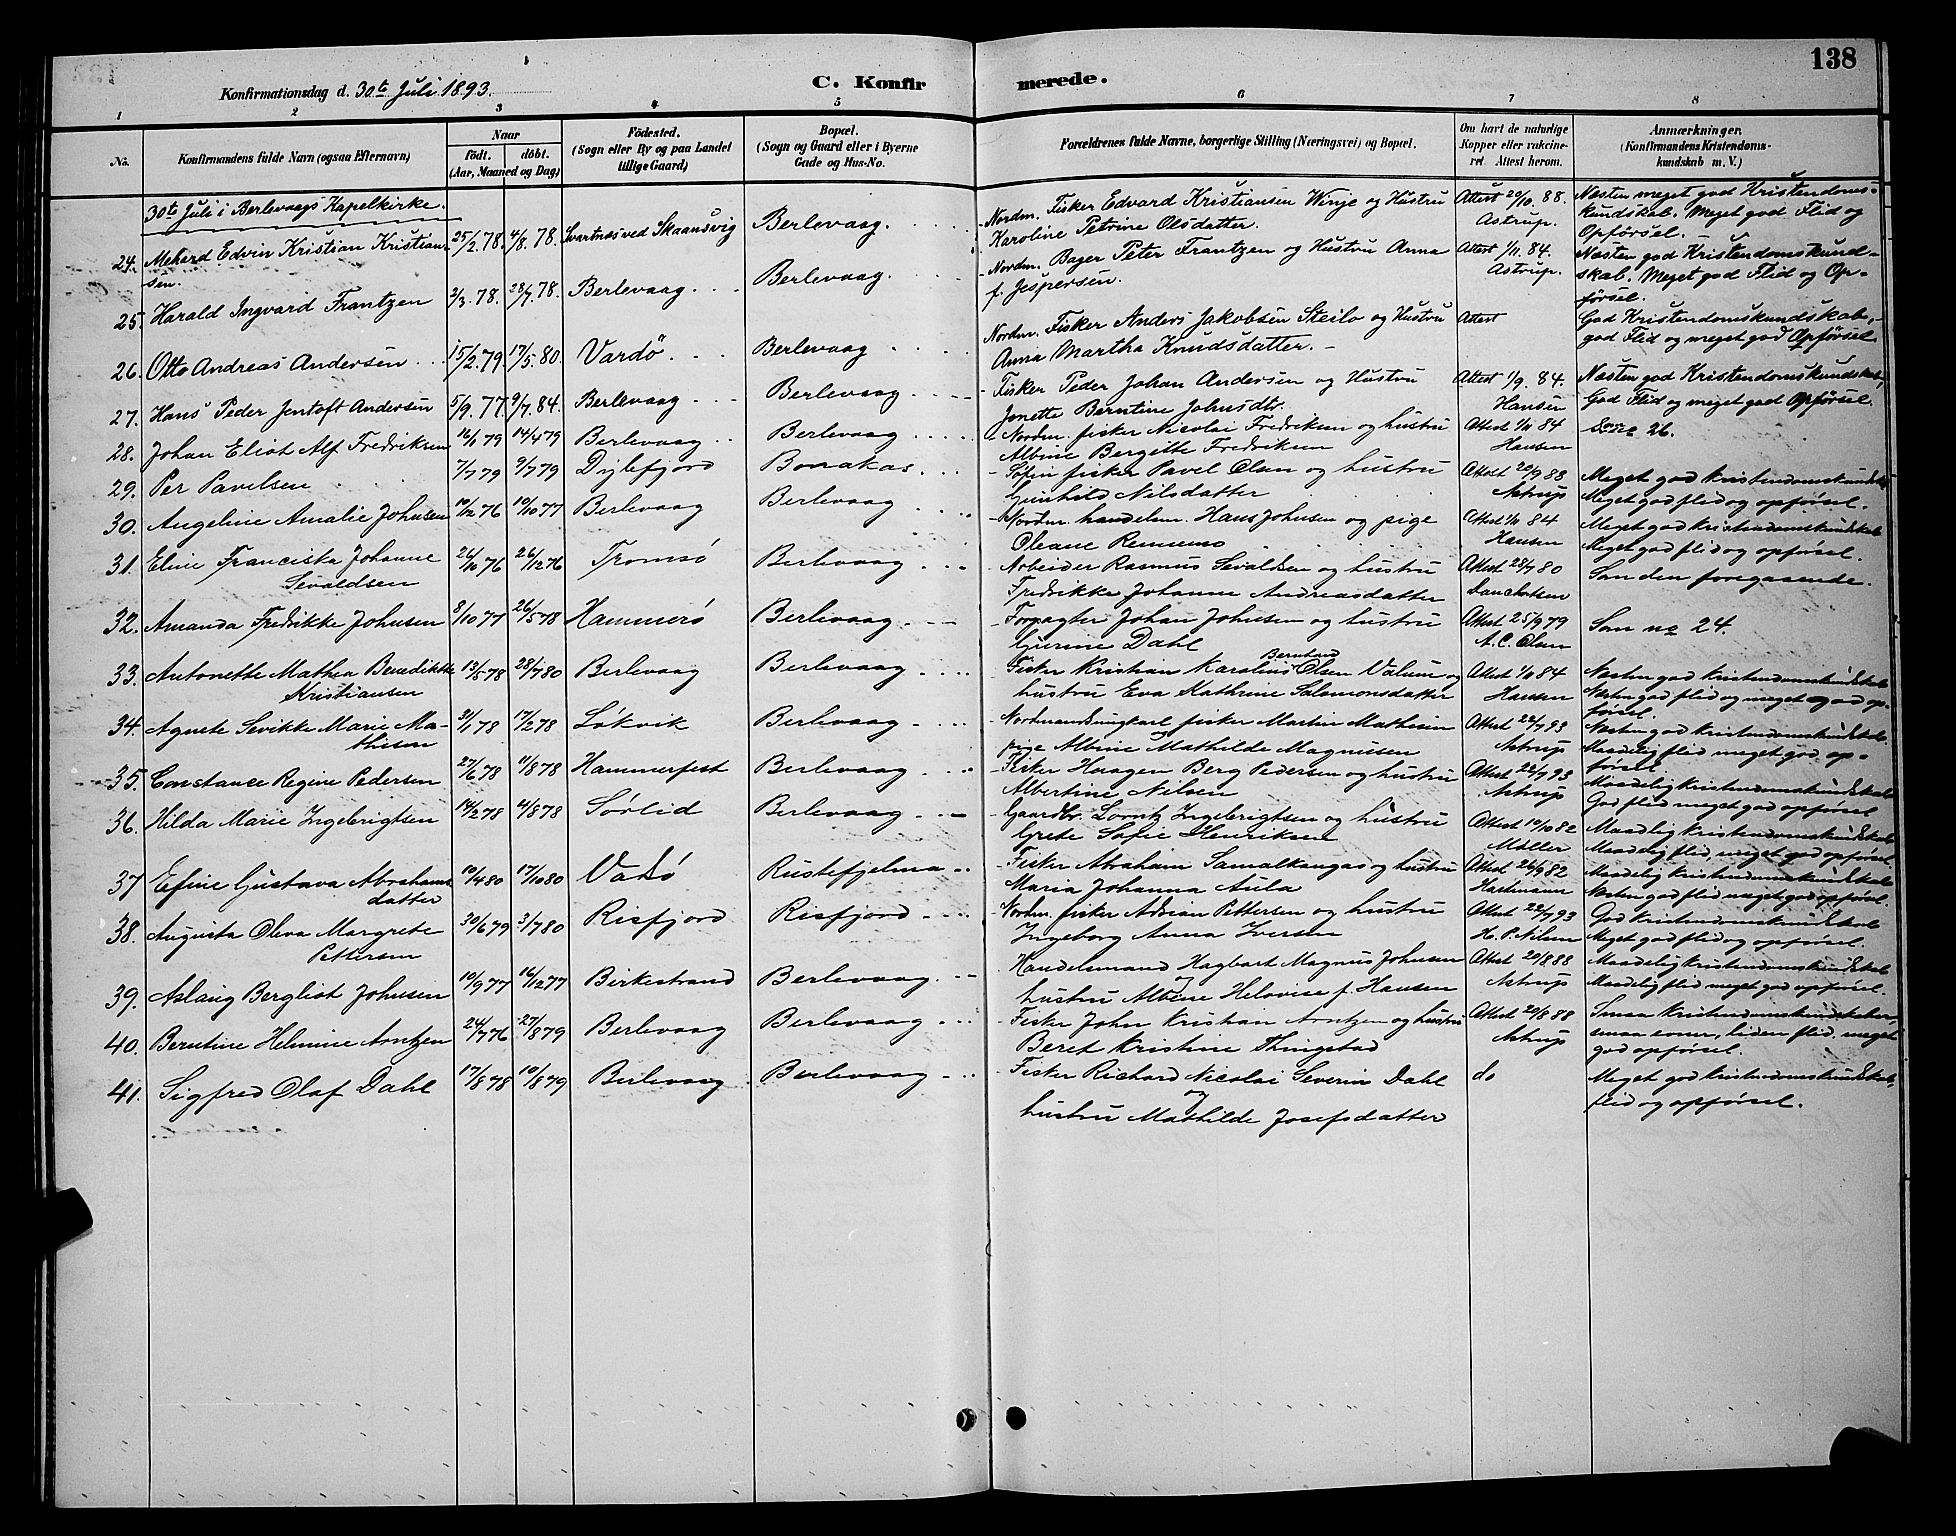 138
Konfirmationsdag d. 30te Juli 1893.
C. Konfirmerede.
1 2 3 4 5 6 7 8
No. Konfirmandens fulde Navn (ogsaa Efternavn) Naar födt. döbt. (Aar, Maaned og Dag) Födested. (Sogn eller By og paa Landet tillige Gaard) Bopæl. (Sogn og Gaard eller i Byerne Gade og Hus-No. Forældrenes fulde Navne, borgerlige Stilling (Næringsvei) og Bopæl. Om havt de naturlige Kopper eller vaccineret. Attest herom. Anmærkninger. (Konfirmandens Kristendomskundskab m. V.)
30te Juli i Berlevaags Kapelkirke.
24. Mehard Edvin Kristian Kristiansen. 25/2.78. 4/8.78. Svartnæs ved Skaansvig Berlevaag. Nordm. Fisker Edvard Kristiansen Winje og Hustru Karoline Petrine Olsdatter. Attest 20/10.88. Astrup. Næsten meget god Kristendomskundskab. Meget god Flid og Opførsel.
25. Harald Ingvard Frantzen 2/3.78. 28/7.78. Berlevaag Berlevaag. Nordm. Bager Peter Frantzen og Hustru Anna f. Jespersen. Attest 1/11.84. Astrup. Næsten god Kristendomskundskab. Meget god Flid og Opførsel.
26. Otto Andreas Andersen 15/2.79 17/5.80. Vardö Berlevaag Nordm. Fisker Anders Jakobsen Steilo og Hustru Anna Martha Knudsdatter. Attest God Kristendomskundskab, god Flid og meget god Opførsel
27. Hans Peder Jentoft Andersen 5/9.77 9/7.84. Berlevaag Berlevaag Fisker Peder Johan Andersen og Hustru Jonette Berntine Johnsdtr. Attest 1/9.84. Hansen Næsten god Kristendomskundskab, God Flid og meget god Opførsel.
28. Johan Eliot Alf Fredriksen 16/1 79 14/4 79 Berlevaag Berlevaag Nordm. fisker Nicolai Fredriksen og hustru Albine Bergitte Fredriksen Attest 1/11 84 Hansen 26.
29. Per Pavelsen 7/7 79 9/7 79 Dylefjord Bonakas. fisker Pavel Olsen og hustru Gunhild Nilsdatter Attest 20/9 88 Astrup Meget god kristendomskundskab Meget god flid og opførsel.
30. Angeline Amalie Johnsen 10/12 76 10/10 77 Berlevaag Berlevaag Nordm. handelsm. Hans Johnsen og pige Oleane Attest 1/11 84 Hansen Meget god kristendomskundskab Meget god flid og opførsel.
31. Eline Franciska Johanne Sevaldsen 26/10 76 26/12 76 Tromsø Berlevaag Arbeider Rasmus Sevaldsen og hustru Fredrikke Johanne Andreasdatter Attest 28/7 80 Som den foregaaende.
32. Amanda Fredrikke Johnsen 8/10 77 26/5 78 Hammerø Berlevaag Forpagter Johan Johnsen og hustru Gurine Dahl Attest 25/9 79 A. C. Olsen Som no 24.
33. Antonette Mathea Benedikte Kristiansen 13/5 78 28/7 80 Berlevaag Berlevaag Fisker Kristian Karolius Bernhard Olsen Valum og hustru Eva Kathrine Salomonsdatter Attest 1/10 84 Hansen Næsten god kristendomskundskab Næsten god flid og meget god opførsel.
34. Agnete Sevikke Marie Mathisen 3/1 78 17/2 78 Løkvik Berlevaag Nordmand ungkarl fisker Martin Mathisen og pige Albine Mathilde Magnusen Attest 22/7 93 Astrup Næsten god kristendomskundskab Maadelig flid meget god opførsel
35. Constance Regine Pedersen 27/6 78 11/8 78 Hammerfest Berlevaag Fisker Haagen Berg Pedersen og hustru Albertine Nilsen Attest 22/7 93 Astrup Maadelig kristendomskundskab God flid meget god opførsel
36. Hilda Marie Ingebrigtsen 14/2 78 4/8 78 Sørlid Berlevaag Gaardbr. Lorntz Ingebrigtsen og hustru Grete Sofie Henriksen Attest 10/10 82 Møller Maadelig kristendomskundskab Maadelig flid, meget god opførsel
37 Efine Gustava Abrahamsdatter 10/4 80 17/10 80 Vadsø Rustefjelma Fisker Abraham Samalkangas og hustru Maria Johanna Aula Attest 26/9 82 Hartmann Maadelig kristendomskundskab Næsten god flid meget god opførsel.
38. Augusta Oleva Margrete Pettersen 30/6 79 3/7 80 Risfjord Risfjord Nordm. fisker Adrian Pettersen og hustru Ingeborg Anna Iversen Attest 22/7 93 H. P. Nilsen God kristendomskundskab Meget god flid og opførsel.
39. Aslaug Bergliot Johnsen 10/9 77 16/12 77 Birkestrand Berlevaag. Handelsmand Hagbart Magnus Johnsen og hustru Albine Helovise f. Hansen Attest 20/8 88 Astrup Maadelig kristendomskundskab Maadelig flid meget god opførsel.
40. Berntine Helmine Arntzen 24/7 76 27/8 79 Berlevaag Berlevaag Fisker John Kristian Arntzen og hustru Beret Kristine Thingstad Attest 20/8 88 Astrup Smaa kristendomskundskaber, smaa evner, liden flid, meget god opførsel.
41. Sigfred Olaf Dahl 17/8 78 10/8 79 Berlevaag Berlevaag Fisker Richard Nicolai Severin Dahl og hustru Mathilde Josefsdatter do Meget god kristendomskundskab, flid og opførsel.